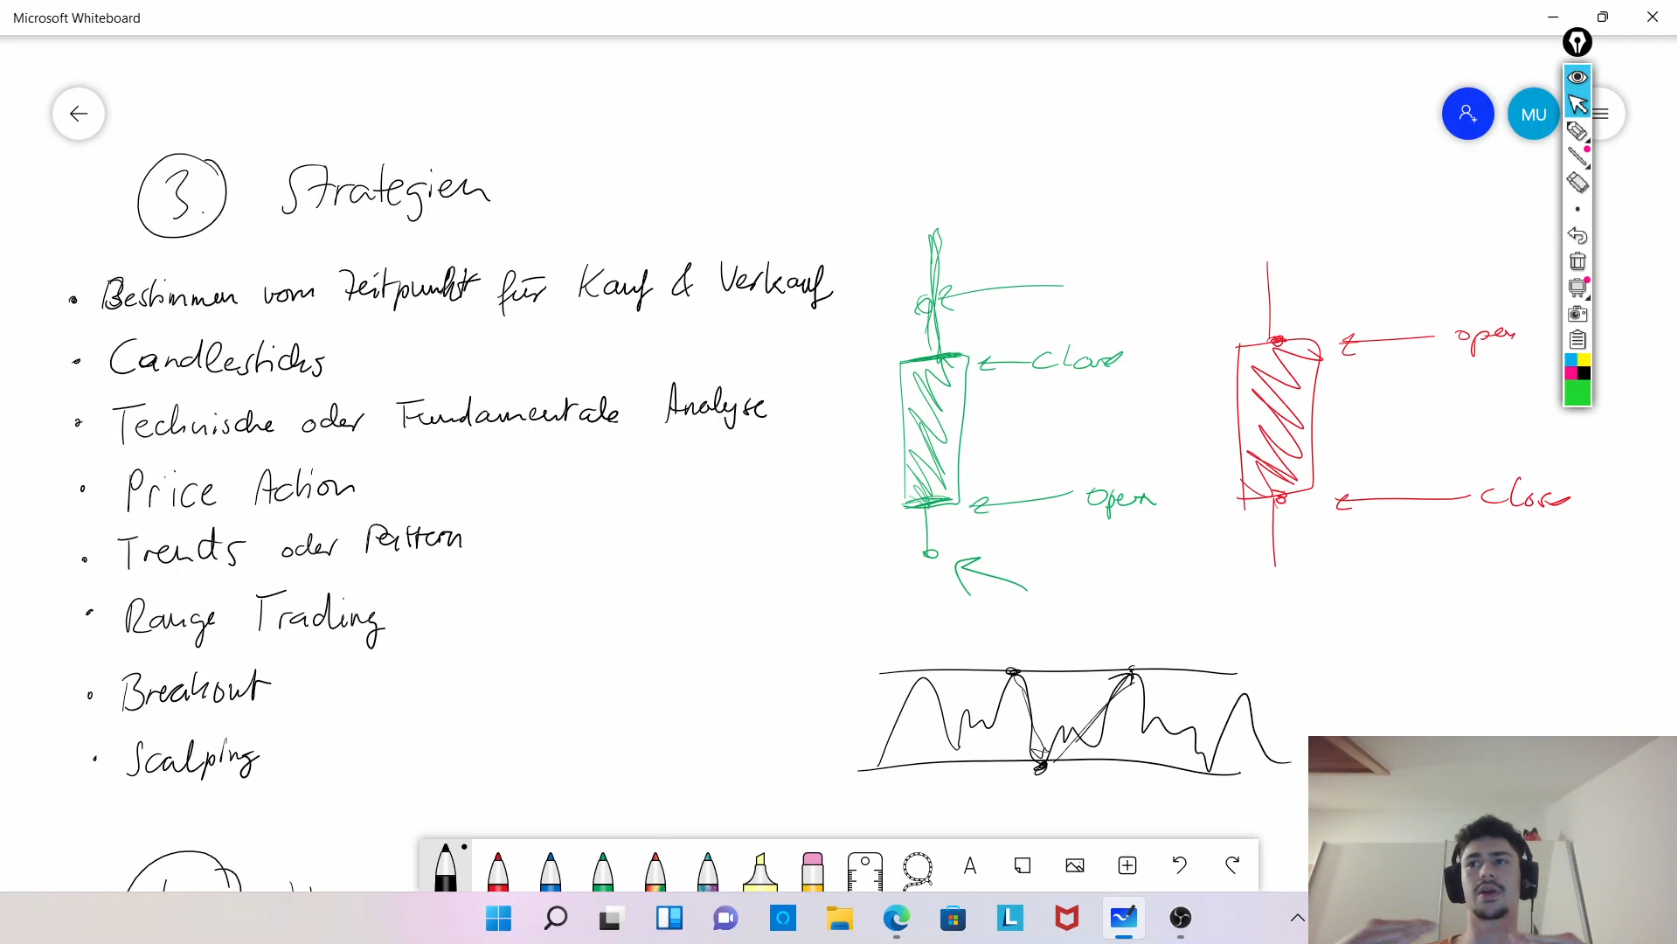 Microsoft Whiteboard
MU
3. Strategien
• Bestimmen vom Zeitpunkt für Kauf & Verkauf
• Candlesticks
• Technische oder Fundamentale Analyse
• Price Action
• Trends oder Pattern
• Range Trading
• Breakout
• Scalping
Close
Open
open
Close
A
L